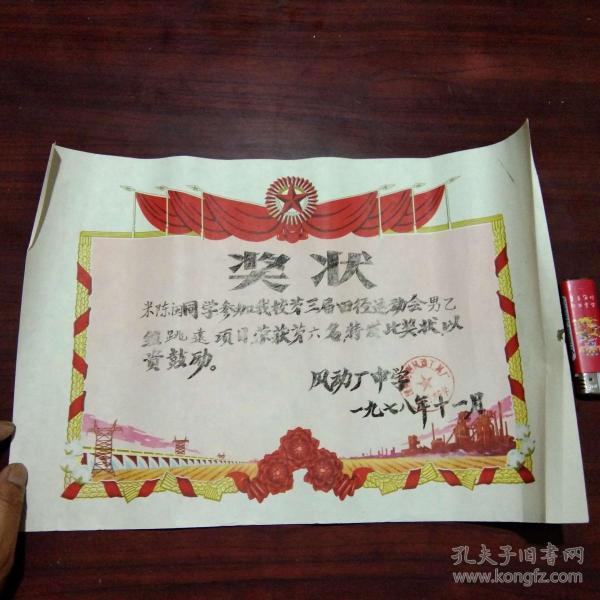 奖状
同学参加我校第三届田径运动会男乙
组跳远项目荣获第六名特发此奖状以
资鼓励。
风动厂中学
一九七八年十一月
孔夫子旧书网
www.kongfz.com